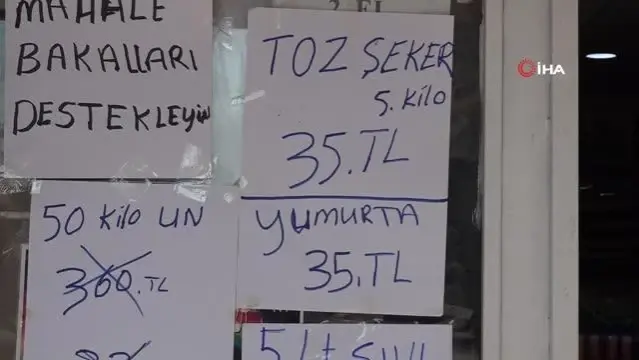 MAHALE
BAKALLARI
DESTEKLEYİN
TOZ ŞEKER
5.Kilo
35.TL
YUMURTA
35.TL
50 Kilo UN
360.TL
5 Lt SIVI
İHA